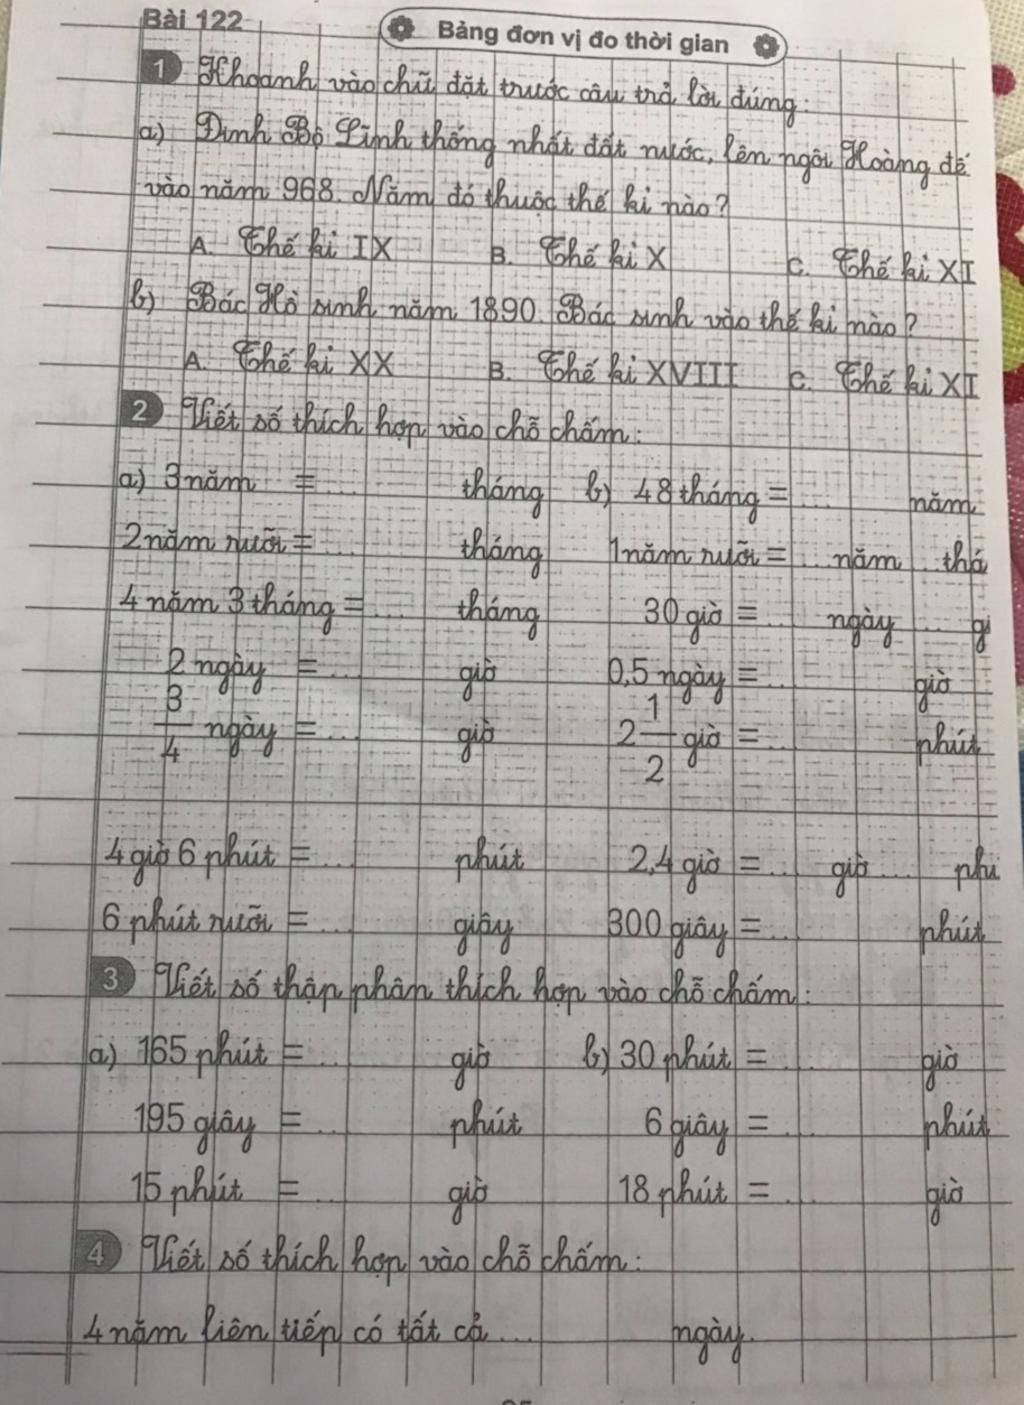 Bài 122
Bảng đơn vị đo thời gian
1 Khoanh vào chữ đặt trước câu trả lời đúng:
a) Đinh Bộ Lĩnh thống nhất đất nước, lên ngôi Hoàng đế
vào năm 968. Năm đó thuộc thế kỉ nào?
A. Thế kỉ IX B. Thế kỉ X C. Thế kỉ XI
b) Bác Hồ sinh năm 1890. Bác sinh vào thế kỉ nào?
A. Thế kỉ XX B. Thế kỉ XVIII C. Thế kỉ XI
2 Viết số thích hợp vào chỗ chấm:
a) 3 năm = ... tháng b) 48 tháng = ... năm
2 năm rưỡi = ... tháng 1 năm rưỡi = ... năm ... thá
4 năm 3 tháng = ... tháng 30 giờ = ... ngày ... gi
2 ngày = ... giờ 0,5 ngày = ... giờ
3/4 ngày = ... giờ 2 1/2 giờ = ... phút
4 giờ 6 phút = ... phút 2,4 giờ = ... giờ ... phú
6 phút rưỡi = ... giây 300 giây = ... phút
3 Viết số thập phân thích hợp vào chỗ chấm:
a) 165 phút = ... giờ b) 30 phút = ... giờ
195 giây = ... phút 6 giây = ... phút
15 phút = ... giờ 18 phút = ... giờ
4 Viết số thích hợp vào chỗ chấm:
4 năm liên tiếp có tất cả ... ngày.